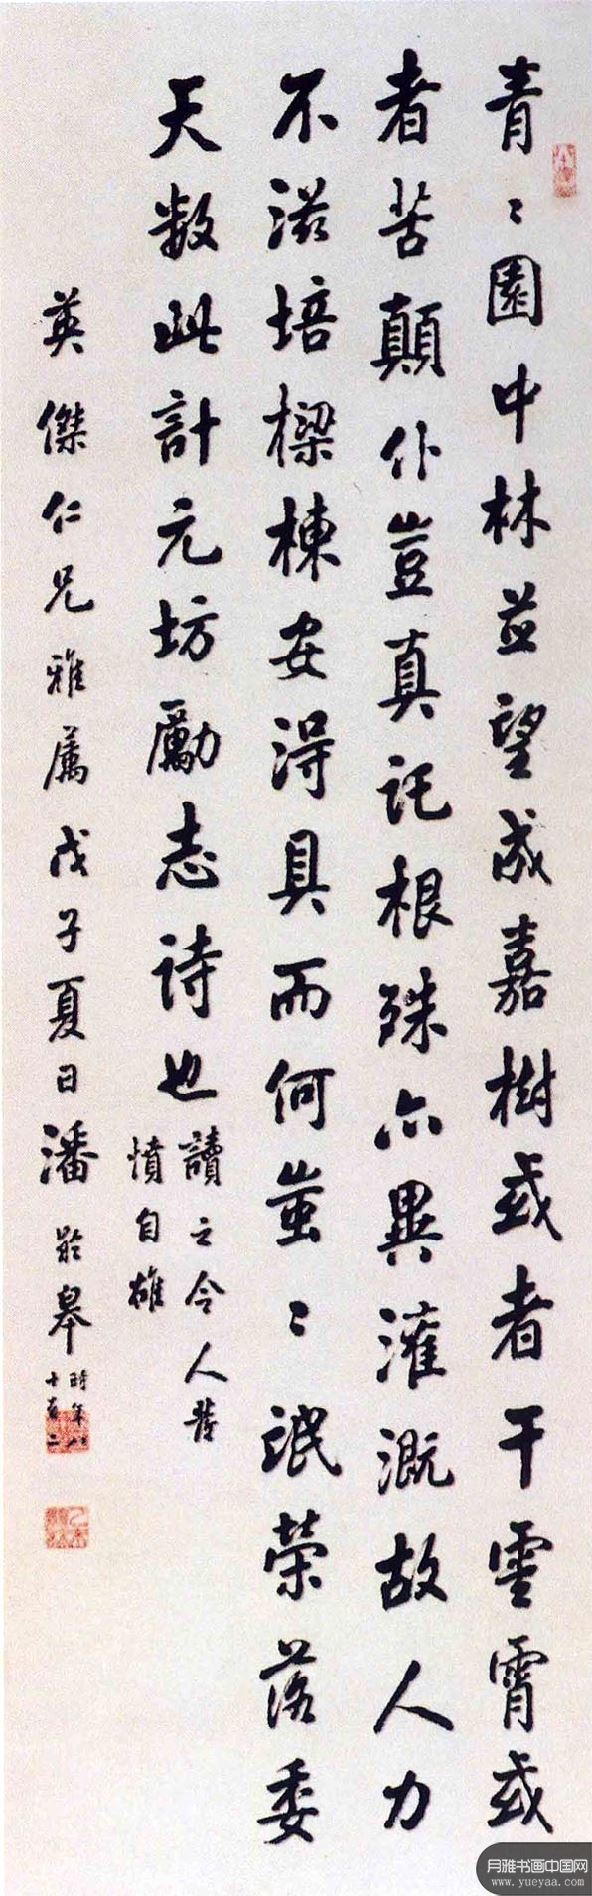 青〻園中林並望成嘉樹或者干雲霄或
者苦顛仆豈真託根殊亦異灌溉故人力
不滋培樑棟安得具而何蚩〻氓榮落委
天數此計元坊勵志詩也
讀之令人發
憤自雄
英傑仁兄雅屬戊子夏日潘齡皋
時年八
十有二
月雅书画中国网
www.yueyaa.com